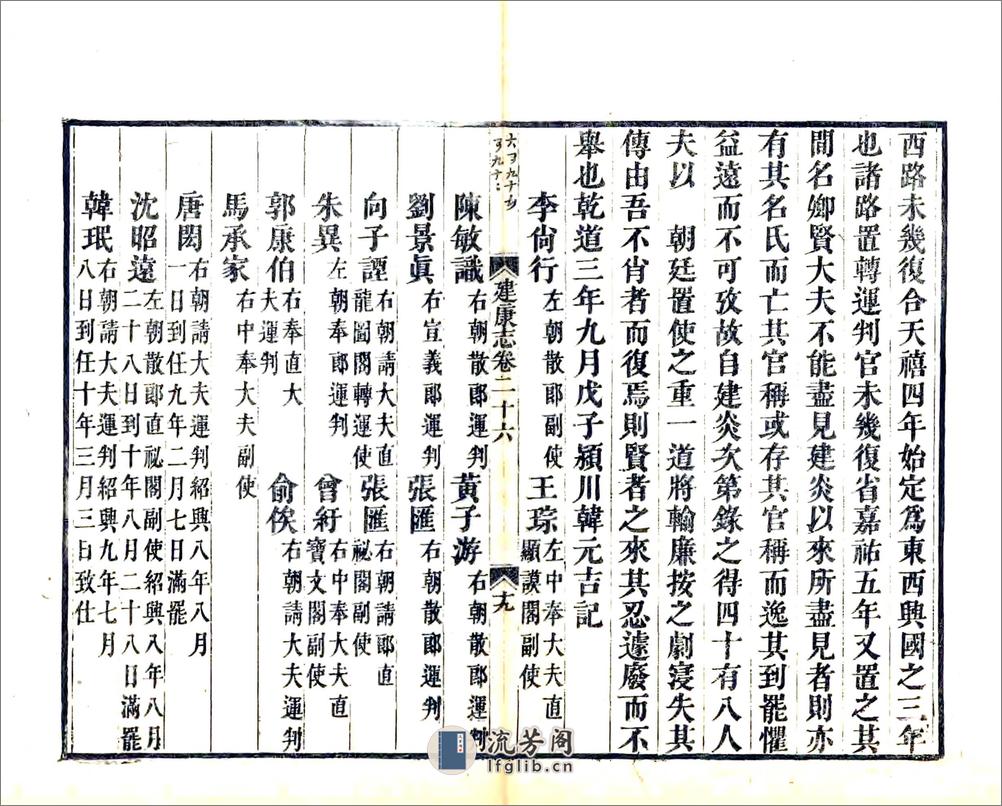 西路未幾復合天禧四年始定爲東西興國之三年
也諸路置轉運判官未幾復省嘉祐五年又置之其
間名卿賢大夫不能盡見建炎以來所盡見者則亦
有其名氏而亡其官稱或存其官稱而逸其到罷懼
益遠而不可攷故自建炎次第錄之得四十有八人
夫以 朝廷置使之重一道將輸廉按之劇寖失其
傳由吾不肖者而復焉則賢者之來其忍遽廢而不
舉也乾道三年九月戊子潁川韓元吉記
李尙行 左朝散郎副使 王琮 左中奉大夫直顯謨閣副使
建康志卷二十六 十九
陳敏識 右朝散郎運判 黃子游 右朝散郎運判
劉景眞 右宣義郎運判 張匯 右朝散郎運判
向子諲 右朝請大夫直龍圖閣轉運使 張匯 右朝請郎直祕閣副使
朱異 左朝奉郎運判 曾紆 右中奉大夫直寶文閣副使
郭康伯 右奉直大夫運判 俞俟 右朝請大夫運判
馬承家 右中奉大夫副使
唐閎 右朝請大夫運判紹興八年八月一日到任九年二月七日滿罷
沈昭遠 左朝散郎直祕閣副使紹興八年八月二十八日到十年八月二十八日滿罷
韓珉 右朝請大夫運判紹興九年七月八日到任十年三月三日致仕
流芳阁
lfglib.cn